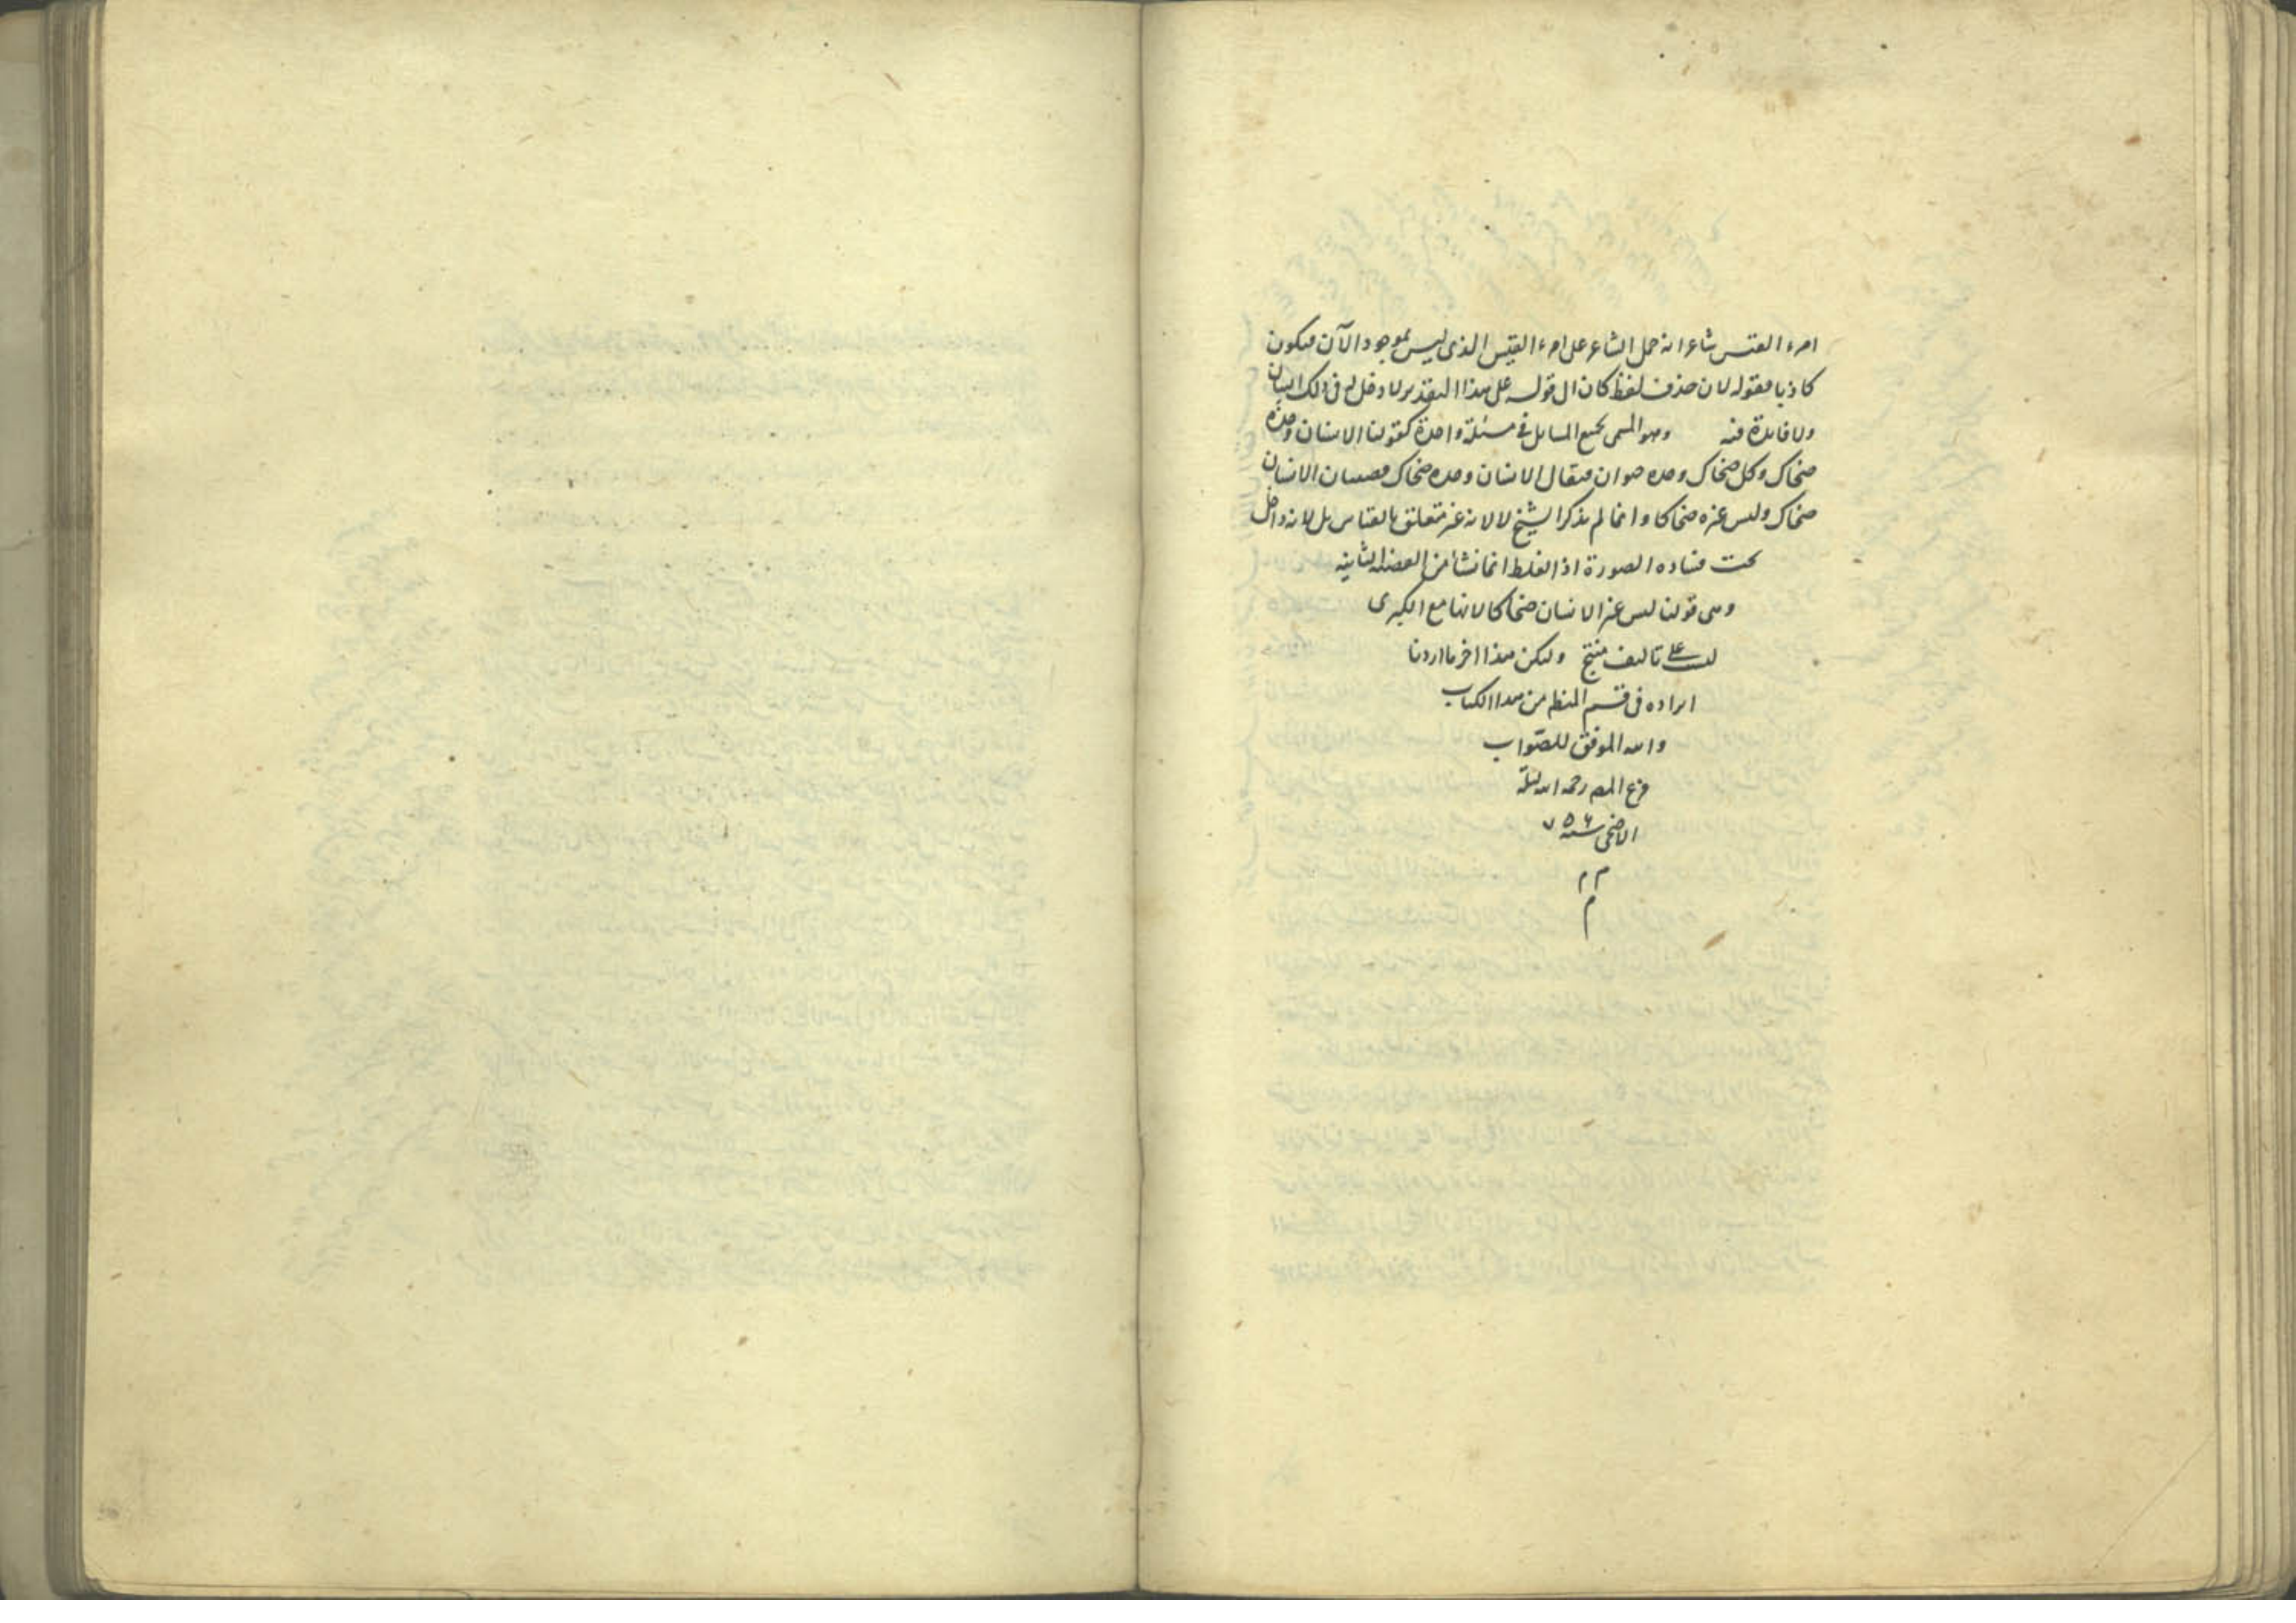 امرء القيس شاعرا انه حمل الشاعر على امرء القيس الذى ليس بموجود الآن فيكون
كاذبا فقوله لان حذف لفظ كان الى قوله على هذا التقدير لا دخل له فى ذلك البيان
ولا فايدة فيه وهو المسمى بجمع المسايل فى مسئلة واحدة كقولنا الانسان وحده
ضحاك وكل ضحاك وحده حيوان فيقال الانسان وحده ضحاك قضيتان الانسان
ضحاك وليس غيره ضحاكا وانما لم يذكر الشيخ لا لانه غير متعلق بالقياس بل لانه داخل
تحت فساده الصورة اذ الغلط انما نشأ من القضية الثانية
وهى قولنا ليس غير الانسان ضحاكا لانها مع الكبرى
ليست على تاليف منتج وليكن هذا اخر ما اردنا
ايراده فى قسم المنطق من هذا الكتاب
والله الموفق للصواب
فرغ المص رحمه الله ليلة
الاضحى سنة ٧٥٦
م م
م